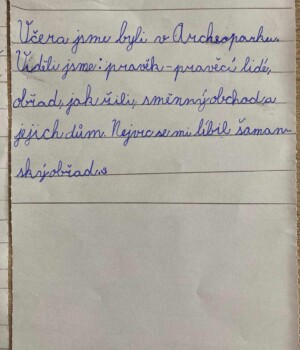 Včera jsme byli v Archeoparku.
Viděli jsme: pravěk - pravěcí lidé,
obřad, jak žili, směnný obchod a
jejich dům. Nejvíc se mi líbil šaman-
ský obřad.